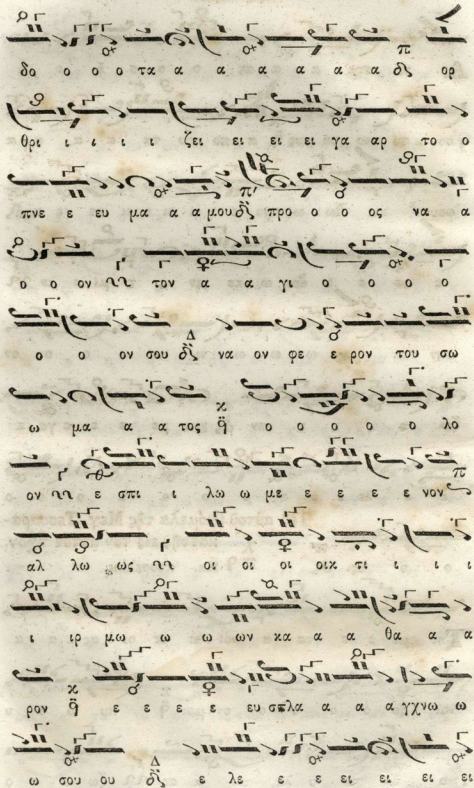 δο ο ο ο τα α α α α α α α ορ
θρι ι ι ι ι ζει ει ει ει ει γα αρ το ο
πνε ε ευ μα α α μου προ ο ο ος να α
ο ο ον τον α α γι ο ο ο ο ο
ο ο ον σου να ον φε ε ρον του σω
ω μα α α τος ο ο ο ο ο λο
ον ε σπι ι λω ω με ε ε ε ε νον
αλ λω ως οι οι οι οικ τι ι ι ι
ι ιρ μω ω ω ω ων κα α α θα α α
ρον ε ε ε ε ε ευ σπλα α α α γχνω ω
ω σου ου ε λε ε ε ει ει ει ει ει